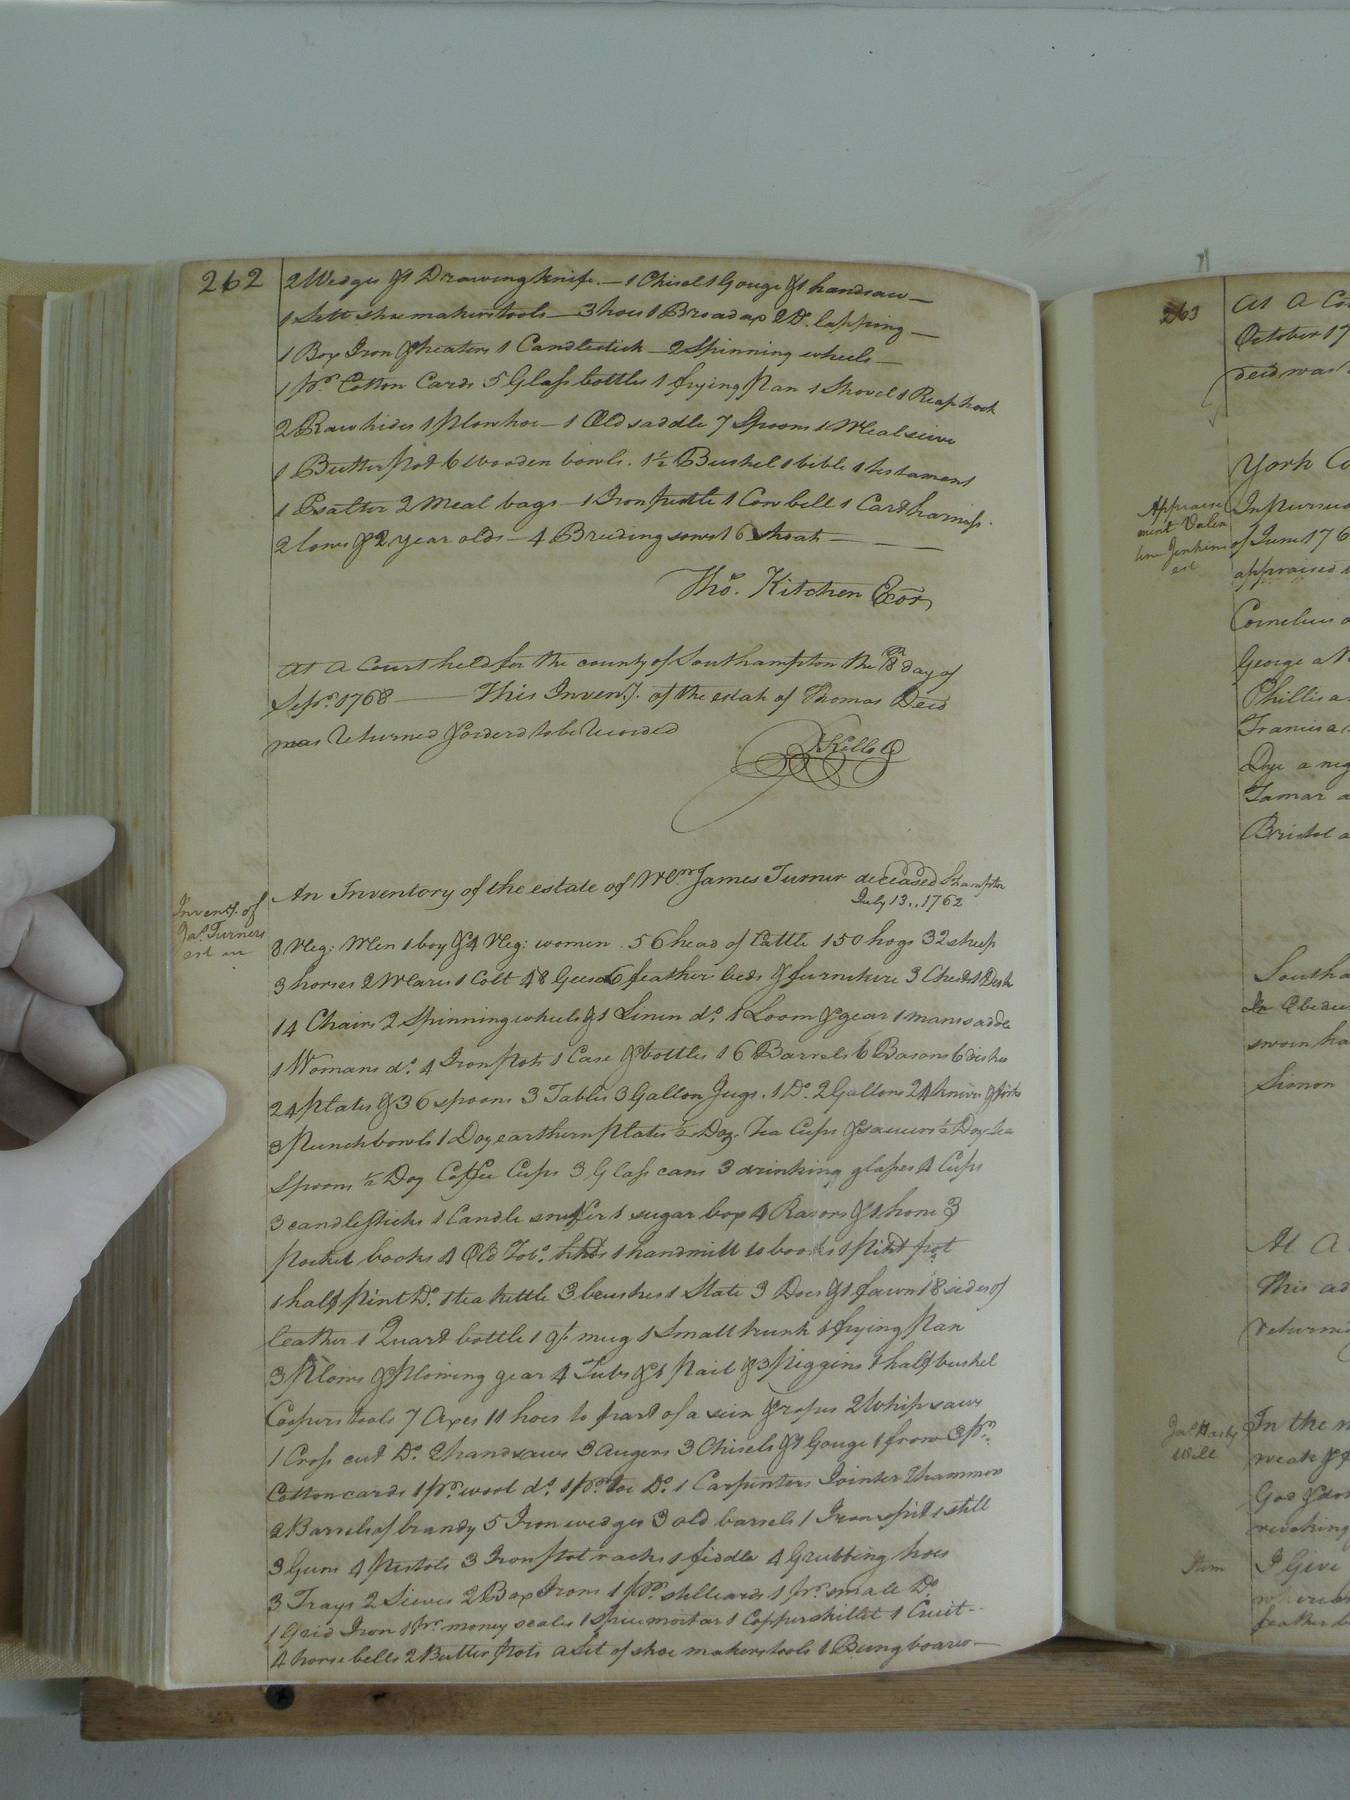 262
2 Wedges & 1 Drawing knife. — 1 Chisel 1 Gouge & 1 handsaw —
1 Sett shoe makers tools — 3 hoes 1 Broad ax 2 Do. lapping —
1 Box Iron & heaters 1 Candlestick — 2 Spinning wheels —
1 pr. Cotton Cards 5 Glass bottles 1 frying Pan 1 Shovel 1 Reap hook
2 Raw hides 1 plow hoe — 1 Old saddle 7 Spoons 1 Meal sieve
1 Butter Pot 6 wooden bowls. 1 ½ Bushel 1 bible 1 testament
1 Psalter 2 Meal bags — 1 Iron pestle 1 Cow bell 1 Cart harness.
2 Cows & 2 year olds — 4 Breeding sows 16 Shoats —
Thos. Kitchen Exor
At A Court held for the county of Southampton the 8th day of
Sepr. 1768 — This Inventy. of the estate of Thomas Decd
was returned & orderd to be recorded
Kello
Inventy. of
Jas. Turners
est
An Inventory of the estate of James Turner deceased
July 13,, 1762
8 Neg: Men 1 boy & 4 Neg: women. 56 head of Cattle 150 hogs 32 sheep
3 horses 2 Mares 1 Colt 48 Geese 6 feather beds & furniture 3 Chests 1 Desk
14 Chairs 2 Spinning wheels & 1 Linen do. 1 Loom & gear 1 mans saddle
1 Womans do. 4 Iron pots 1 Case & bottles 16 Barrels 6 Basons 6 dishes
24 plates & 36 spoons 3 Tables 3 Gallon Jugs. 1 Do. 2 Gallons 24 knives & forks
3 Punch bowls 1 Doz earthern plates ½ Doz. Tea Cups & saucers ½ Doz. Tea
Spoons ½ Doz Coffee Cups 3 Glass cans 3 drinking glasses 4 Cups
3 candlesticks 1 Candle snuffer 1 sugar box 4 Rasors & 1 hone 3
Pocket books 4 Old Tobo. hhds 1 handmill 10 books 1 pint pot
1 half pint Do. 1 tea kettle 3 brushes 1 Slate 3 Does & 1 fawn 18 sides of
leather 1 Quart bottle 1 qt. mug 1 Small trunk 1 frying Pan
3 Plows & Plowing gear 4 Tubs & 1 Pail & 3 Piggins 1 half bushel
Coopers tools 7 Axes 11 hoes to part of a sein & ropes 2 Whip saws
1 Cross cut Do. 2 handsaws 3 augers 3 Chisels & 1 Gouge 1 frow 3 pr.
Cotton cards 1 pr. wool do. 1 pr. toe Do. 1 Carpenters Jointer 1 hammer
2 Barrels of brandy 5 Iron wedges 3 old barrels 1 Iron spit 1 still
3 Guns 4 pistols 3 Iron pot racks 1 fiddle 4 Grubbing hoes
3 Trays 2 Sieves 2 Box Irons 1 pr. stelleards 1 pr. small Do.
1 Grid Iron 1 pr. money scales 1 spice mortar 1 Copper skillet 1 Cruit --
4 horse bells 2 Butter pots a Set of shoe makers tools 1 Bung boarer —
263
At A Co
October 17
Decd was
York Co
Appraise
ment Valen
tine Jenkins
est
In pursua
of June 176
appraised
Cornelius a
George a N
Phillis a
Francis a
Dye a neg
Tamar a
Bristol a
Southa
In Obedien
sworn ha
Simon
At A
This ad
returned
Will
In the n
weak & f
God & do
revoking
Item
I Give
feather